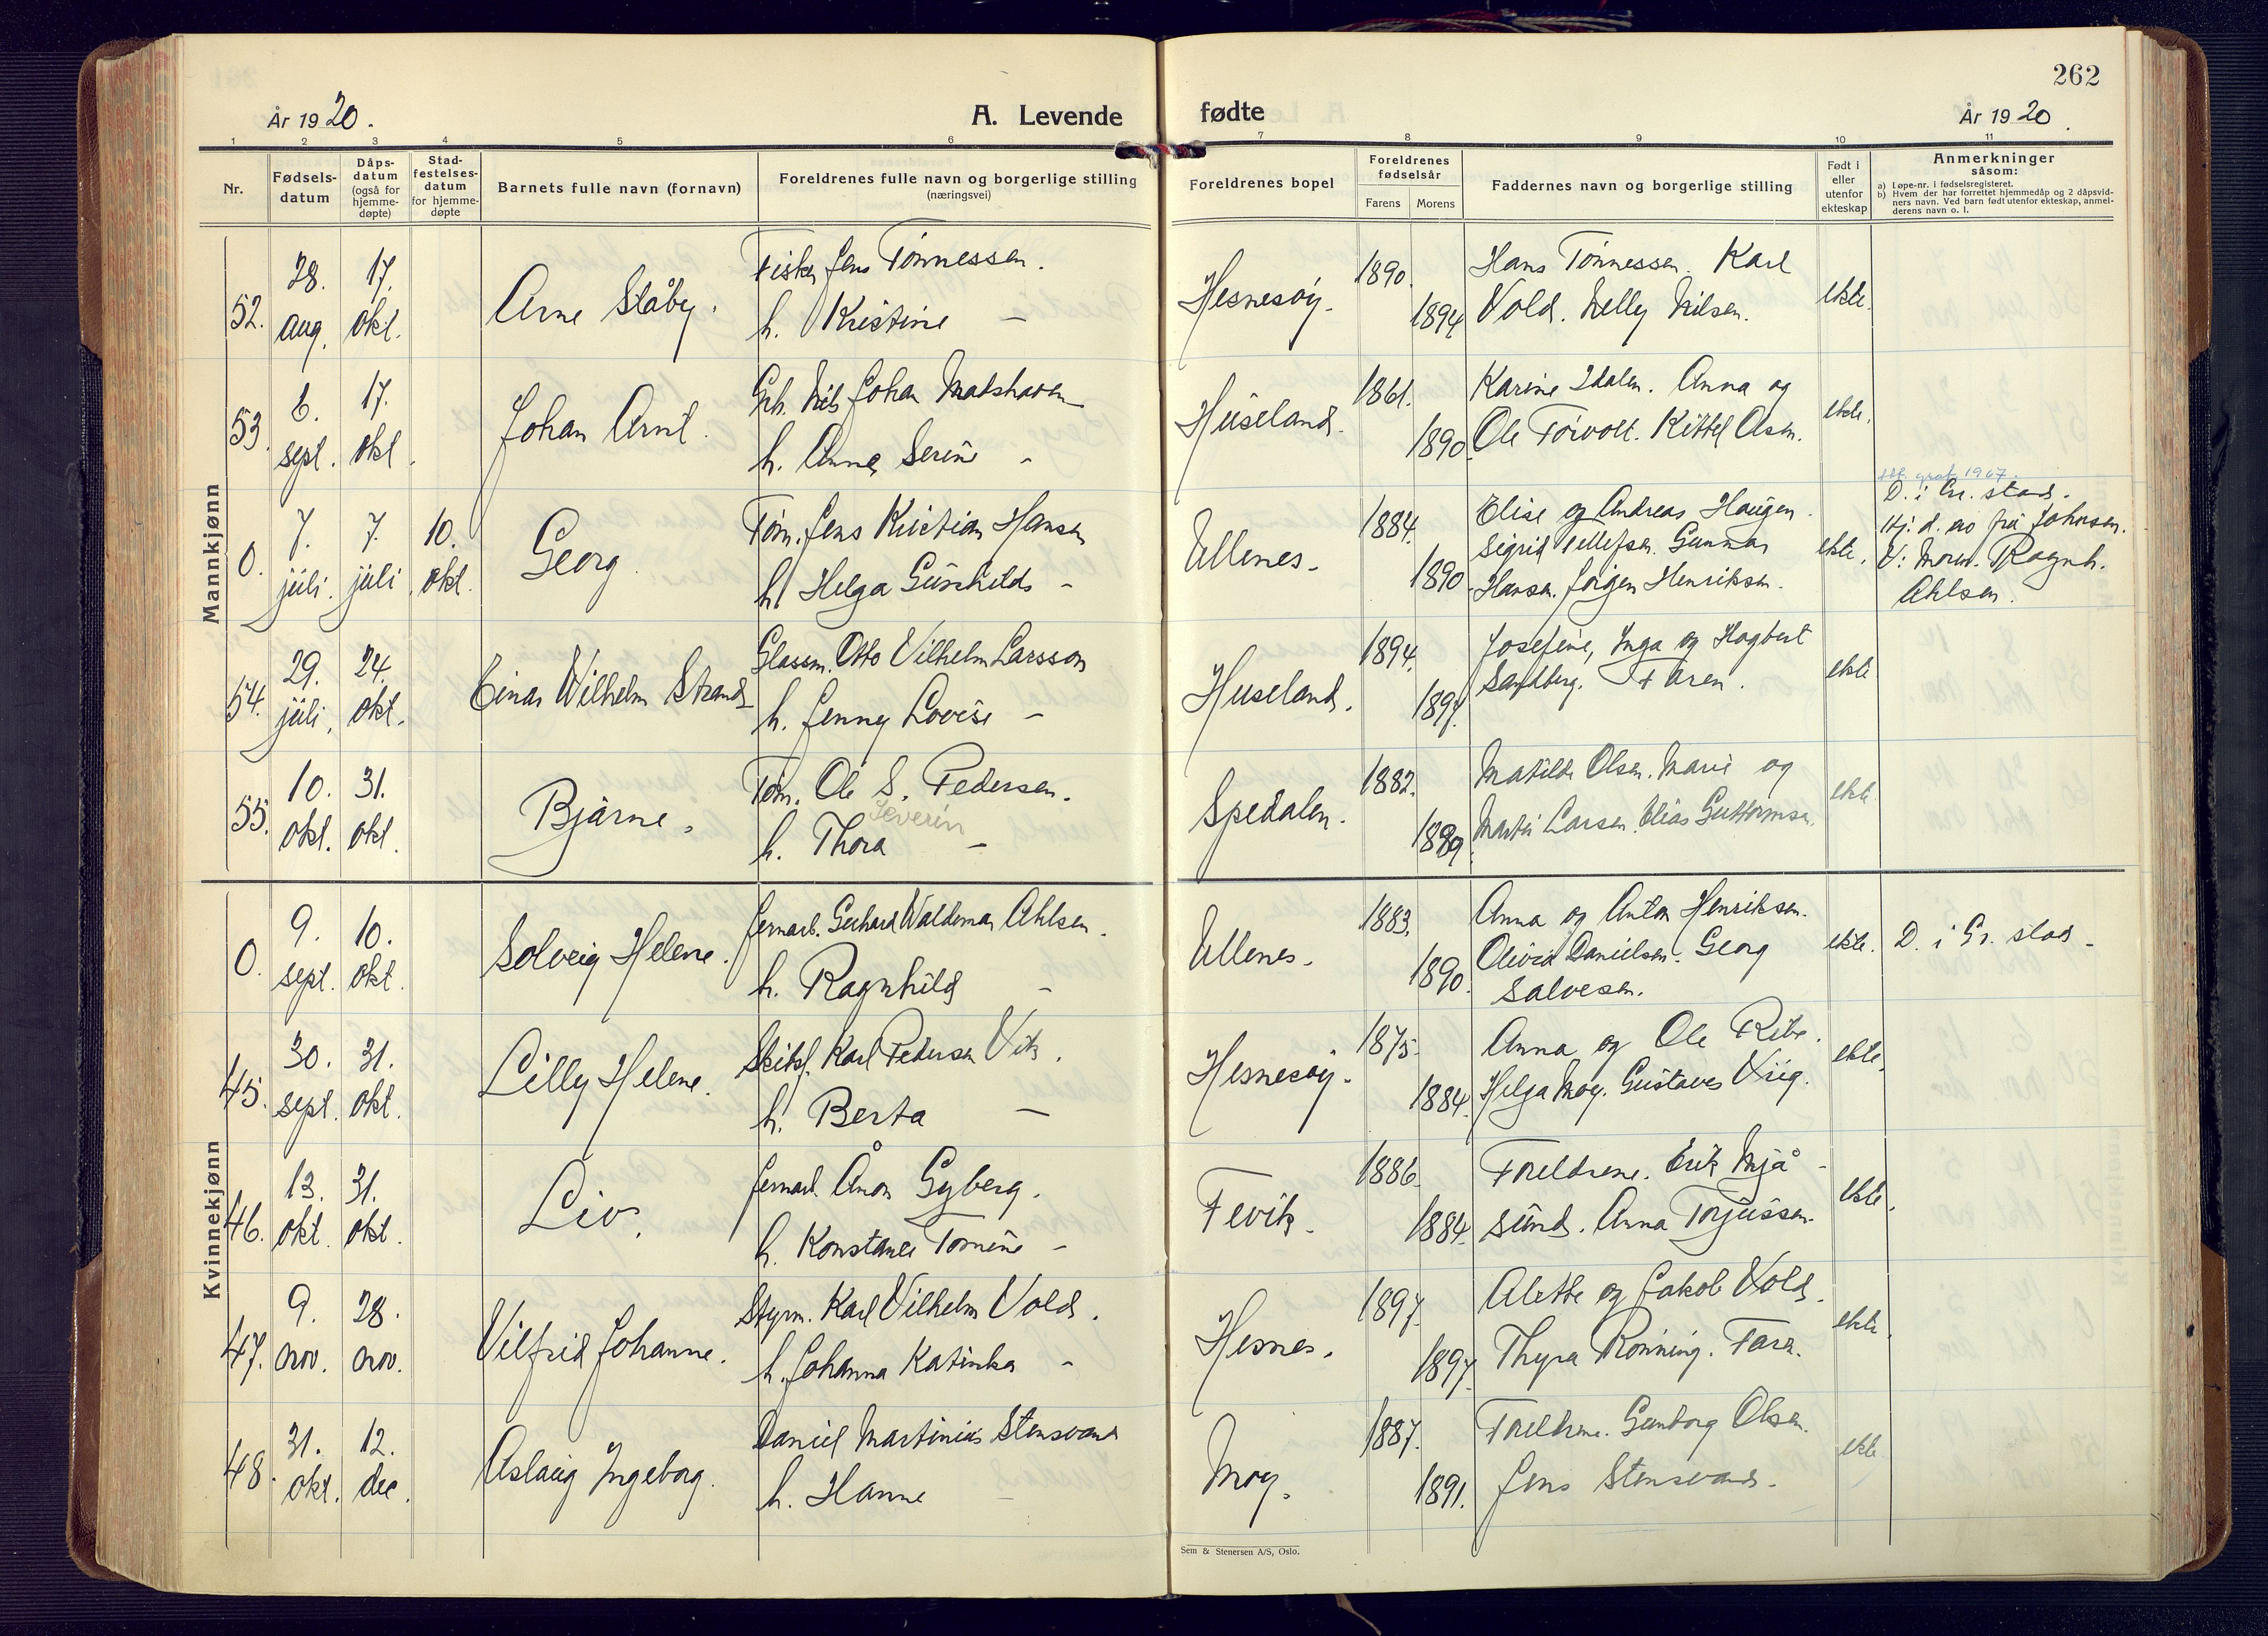 262
År 1920.
A. Levende fødte
År 1920.
1 2 3 4 5 6 7 8 9 10 11
Nr.
Fødsels-
datum
Dåps-
datum
(også for
hjemme-
døpte)
Stad-
festelses-
datum
for hjemme-
døpte
Barnets fulle navn (fornavn)
Foreldrenes fulle navn og borgerlige stilling
(næringsvei)
Foreldrenes bopel
Foreldrenes
fødselsår
Farens Morens
Faddernes navn og borgerlige stilling
Født i
eller
utenfor
ekteskap
Anmerkninger
såsom:
a) Løpe-nr. i fødselsregisteret.
b) Hvem der har forrettet hjemmedåp og 2 dåpsvid-
ners navn. Ved barn født utenfor ekteskap, anmel-
derens navn o. l.
Mannkjønn
52. 28. aug. 17. okt. Arne Ståby.
Fisker Jens Tønnessen.
h. Kristine –
Hesnesøy. 1890. 1894
Hans Tønnessen. Karl
Vold. Nelly Nilsen.
ekte.
53. 6. sept. 17. okt. Johan Arnt.
Grb. Nils Johan Madshaven
h. Anna Serine –
Huseland. 1861. 1890.
Karine Idalen. Anna og
Ole Torvolt. Kittel Olsen.
ekte.
0. 7. juli. 7. juli. 10. okt. Georg.
Tøm. Jens Kristian Hansen
h. Helga Gunhilds –
Ullenes. 1884. 1890
Elise og Andreas Haugen.
Sigrid Tellefsen. Gunnar
Hansen. Jørgen Henriksen.
ekte.
1967.
D. i Gr. stad.
Hj. d. av frü Johnsen.
V: Moren. Ragnh.
Ahlsen.
54. 29. juli. 24. okt. Einar Wilhelm Strand
Glassm. Otto Vilhelm Larsson
h. Jenny Lovise –
Huseland. 1894. 1897.
Josefine, Inga og Hagbert
Sandberg. Faren.
ekte
55. 10. okt. 31. okt. Bjarne.
Tøm. Ole S. Pedersen.
Severin
h. Thora –
Spedalen. 1882. 1889.
Matilde Olsen. Marie og
Martin Larsen. Elias Guttormsen.
ekte
Kvinnekjønn
0. 9. sept. 10. okt. Solveig Helene.
Jernarb. Gerhard Waldemar Ahlsen.
h. Ragnhild –
Ullenes. 1883. 1890.
Anna og Anton Henriksen.
Olivia Danielsen. Georg
Salvesen.
ekte. D. i Gr. stad –
45. 30. sept. 31. okt. Lilly Helene.
Skibsf. Karl Pedersen Vik.
h. Berta –
Hesnesøy. 1875. 1884.
Anna og Ole Ribe.
Helga Moy. Gustaves Viig.
ekte.
46. 13. okt. 31. okt. Liv.
Jernarb. Anon Gyberg.
h. Konstance Tomine –
Fevik. 1886. 1884.
Foreldrene. Erik Mjå-
sund. Anna Torjussen.
ekte.
47. 9. nov. 28. nov. Vilfrid Johanne.
Styrm. Karl Vilhelm Vold.
h. Johanna Katinka –
Hesnes. 1897. 1897.
Alette og Jakob Vold.
Thyra Rønning. Faren.
ekte.
48. 31. okt. 12. dec. Aslaug Ingeborg.
Daniel Martinius Stensvand
h. Hanne –
Moy. 1887. 1891.
Foreldrene. Gunborg Olsen.
Jens Stensvand.
ekte
Sem & Stenersen A/S, Oslo.